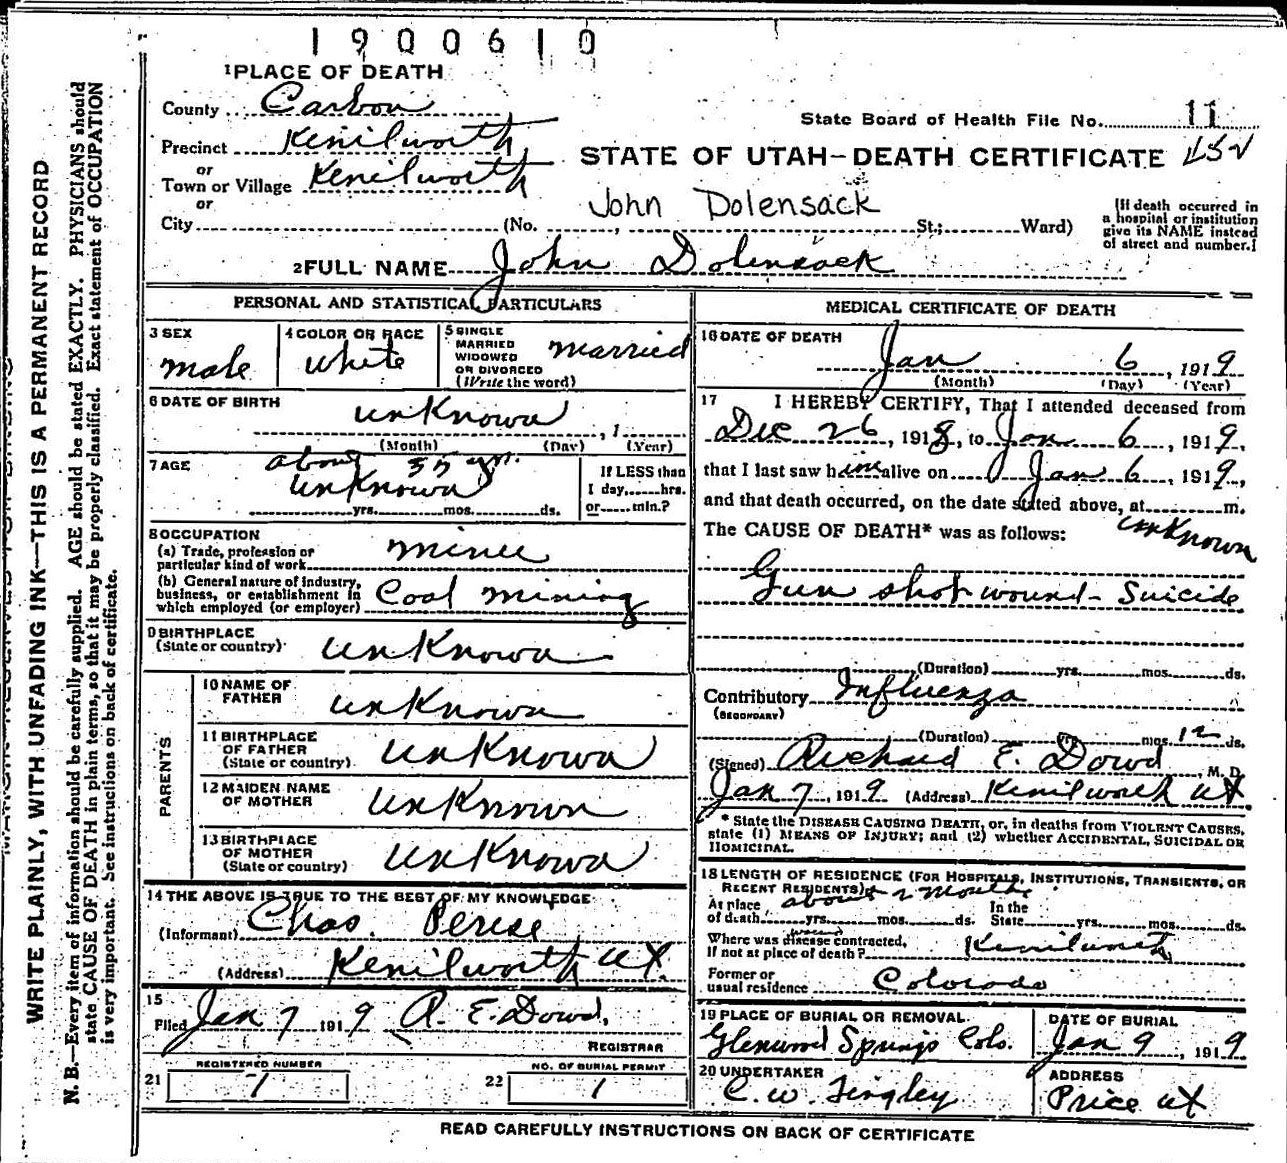 1900610
1 PLACE OF DEATH
County Carbon
State Board of Health File No. 11
Precinct Kenilworth
STATE OF UTAH—DEATH CERTIFICATE
or
Town or Village Kenilworth
or
John Dolensack
City (No. , St.; Ward)
(If death occurred in
a hospital or institution
give its NAME instead
of street and number.)
2 FULL NAME John Dolensack
PERSONAL AND STATISTICAL PARTICULARS
3 SEX
male
4 COLOR OR RACE
white
5 SINGLE
MARRIED
WIDOWED
OR DIVORCED
(Write the word)
married
6 DATE OF BIRTH
unknown , 1
(Month) (Day) (Year)
7 AGE
about yrs.
unknown
yrs. mos. ds.
If LESS than
1 day, hrs.
or min.?
8 OCCUPATION
(a) Trade, profession or
particular kind of work miner
(b) General nature of industry,
business, or establishment in
which employed (or employer) Coal mining
9 BIRTHPLACE
(State or country) unknown
PARENTS
10 NAME OF
FATHER unknown
11 BIRTHPLACE
OF FATHER
(State or country) unknown
12 MAIDEN NAME
OF MOTHER unknown
13 BIRTHPLACE
OF MOTHER
(State or country) unknown
14 THE ABOVE IS TRUE TO THE BEST OF MY KNOWLEDGE
(Informant) Chas.
(Address) Kenilworth Ut.
15
Filed Jan 7 1919 R. E. Dowd,
REGISTRAR
REGISTERED NUMBER
21 1
NO. OF BURIAL PERMIT
22 1
MEDICAL CERTIFICATE OF DEATH
16 DATE OF DEATH
Jan 6, 1919
(Month) (Day) (Year)
17 I HEREBY CERTIFY, That I attended deceased from
Dec 26, 1918, to Jan 6, 1919,
that I last saw him alive on Jan 6, 1919,
and that death occurred, on the date stated above, at m.
unknown
The CAUSE OF DEATH* was as follows:
Gun shot wound - Suicide
(Duration) yrs. mos. ds.
Contributory Influenza
(SECONDARY)
(Duration) yrs. mos. 12 ds.
(Signed) Richard E. Dowd, M. D.
Jan 7, 1919 (Address) Kenilworth Ut.
* State the DISEASE CAUSING DEATH, or, in deaths from VIOLENT CAUSES,
state (1) MEANS OF INJURY; and (2) whether ACCIDENTAL, SUICIDAL OR
HOMICIDAL.
18 LENGTH OF RESIDENCE (FOR HOSPITALS, INSTITUTIONS, TRANSIENTS, OR
RECENT RESIDENTS)
about 2 months
At place
of death yrs. mos. ds.
In the
State yrs. mos. ds.
wound
Where was disease contracted,
If not at place of death? Kenilworth
Former or
usual residence Colorado
19 PLACE OF BURIAL OR REMOVAL
Glenwood Springs Colo.
DATE OF BURIAL
Jan 9, 1919
20 UNDERTAKER
C. W. Tingley
ADDRESS
Price Ut
READ CAREFULLY INSTRUCTIONS ON BACK OF CERTIFICATE
WRITE PLAINLY, WITH UNFADING INK—THIS IS A PERMANENT RECORD
N. B.—Every item of information should be carefully supplied. AGE should be stated EXACTLY. PHYSICIANS should
state CAUSE OF DEATH in plain terms, so that it may be properly classified. Exact statement of OCCUPATION
is very important. See instructions on back of certificate.